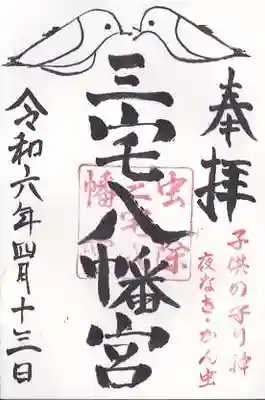 奉拝
子供の守り神
夜なき・かん虫
三宅八幡宮
虫除
三宅
幡
令和六年四月十三日